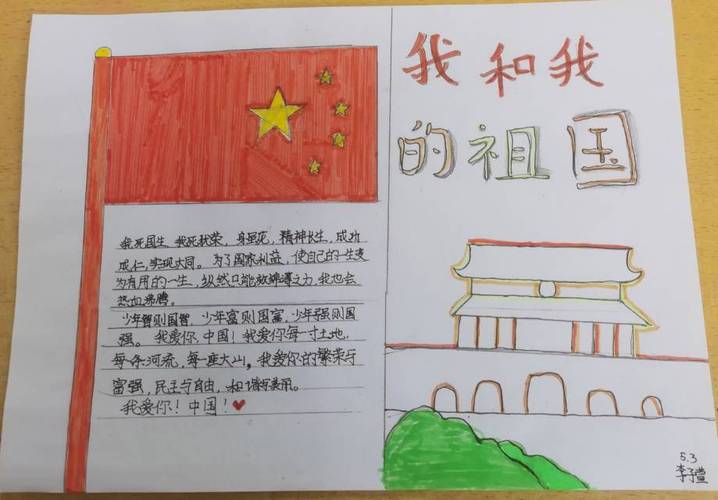 我和我
的祖国
我死国生,我死犹荣,身虽死,精神长生,成功
成仁,实现大同。为了国家利益,使自己的一生变
为有用的一生,纵然只能效绵薄之力,我也会
热血沸腾。
少年智则国智,少年富则国富,少年强则国
强。我爱你,中国!我爱你每一寸土地,
每一条河流,每一座大山。我爱你的繁荣与
富强,民主与自由,和谐与美丽。
我爱你!中国!
5.3
李子萱